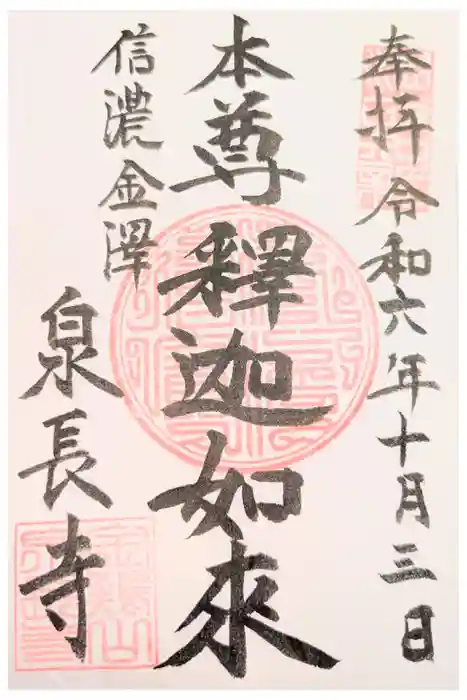 奉拝 令和六年十月三日
本尊 釋迦如來
信濃金澤
泉長寺